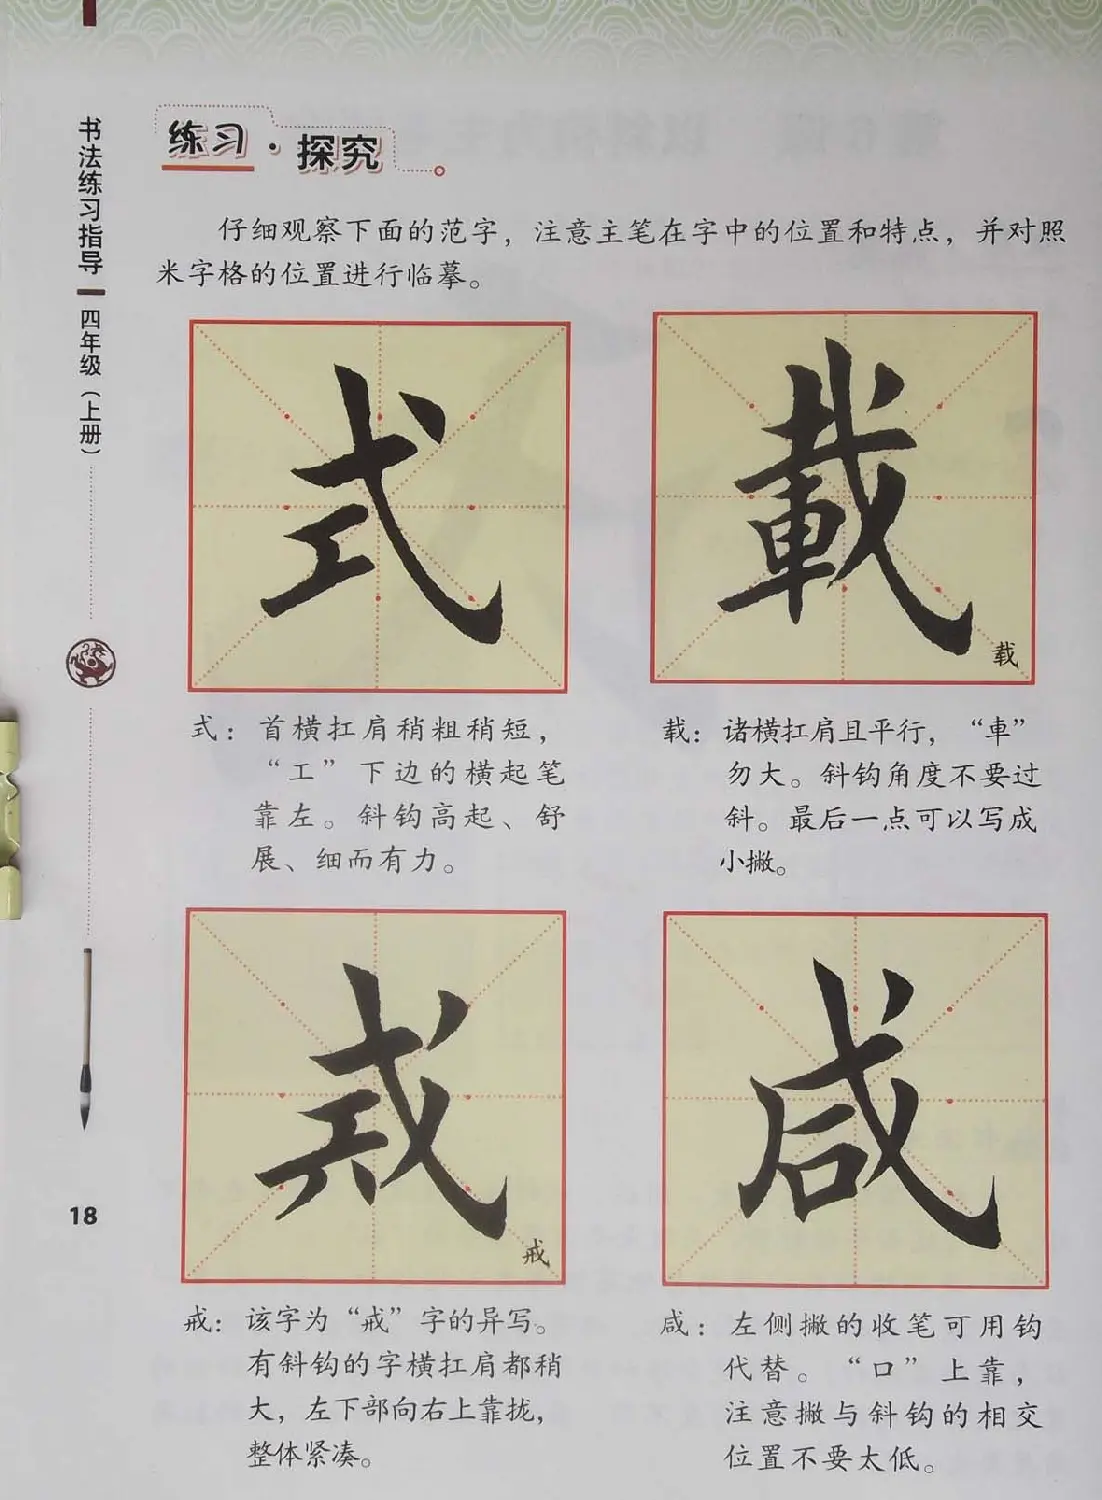 书法练习指导 四年级（上册）
练习·探究
仔细观察下面的范字，注意主笔在字中的位置和特点，并对照
米字格的位置进行临摹。
式
載
载
式：首横扛肩稍粗稍短，
“工”下边的横起笔
靠左。斜钩高起、舒
展、细而有力。
载：诸横扛肩且平行，“車”
勿大。斜钩角度不要过
斜。最后一点可以写成
小撇。
戒
戒
咸
18
戒：该字为“戒”字的异写。
有斜钩的字横扛肩都稍
大，左下部向右上靠拢，
整体紧凑。
咸：左侧撇的收笔可用钩
代替。“口”上靠，
注意撇与斜钩的相交
位置不要太低。